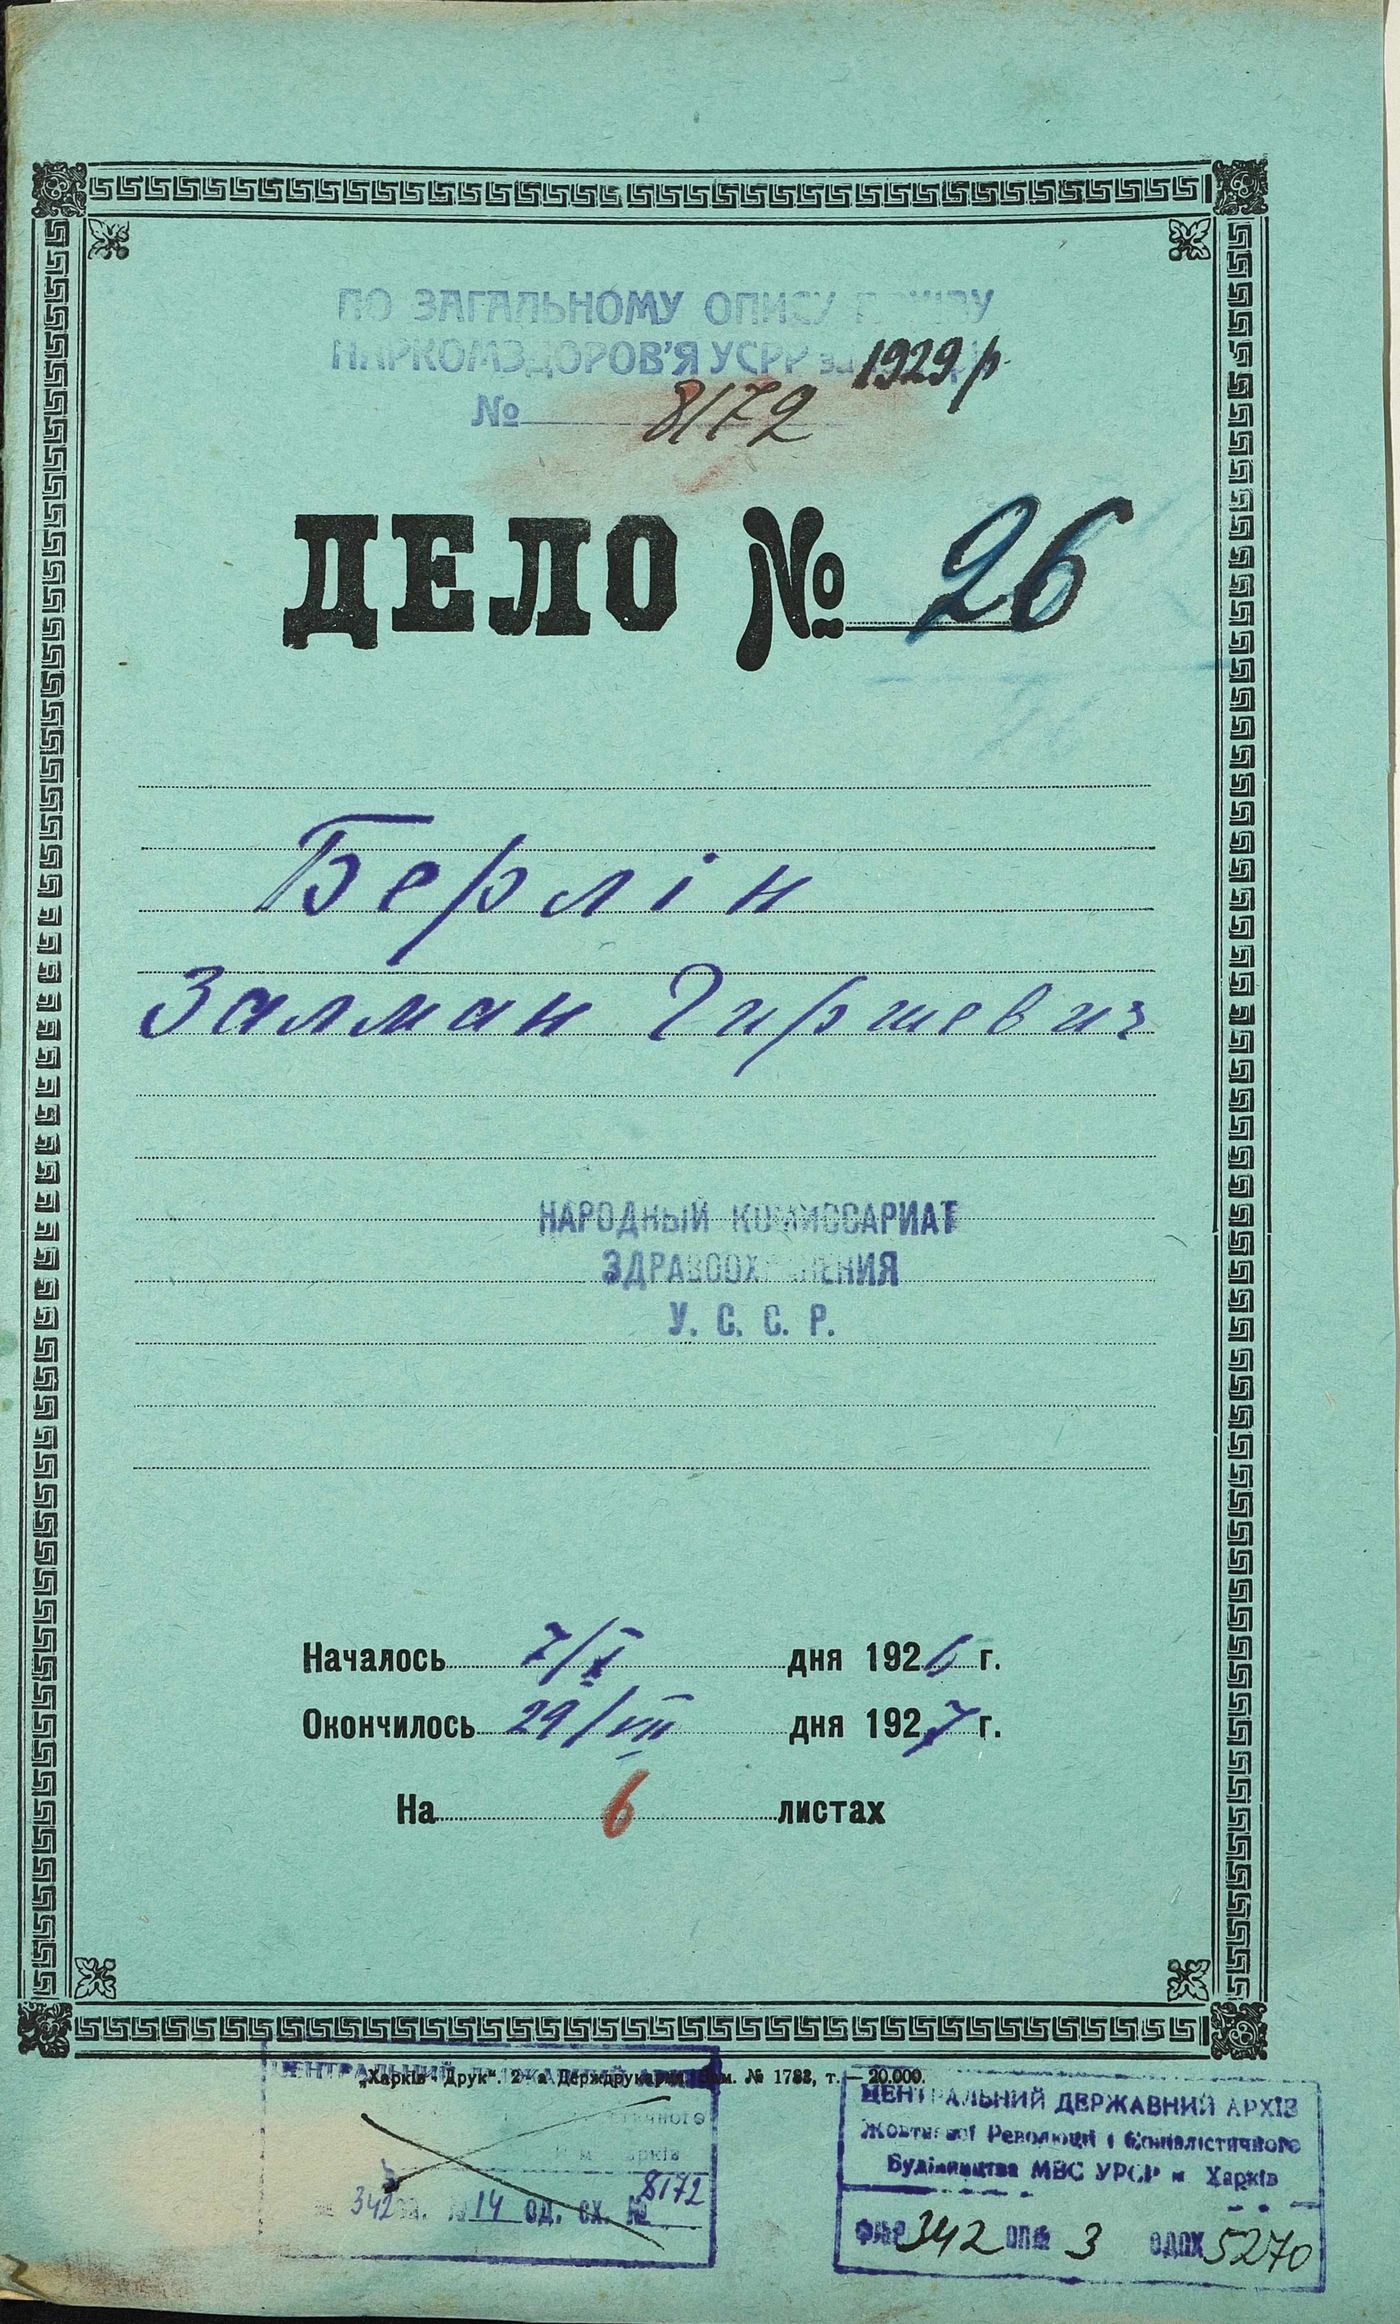 ПО ЗАГАЛЬНОМУ ОПИСУ
НАРКОМЗДОРОВ'Я УСРР за 1929 р.
№ 8172
ДЕЛО № 26
Берлін
Залман Гиршевич
НАРОДНЫЙ КОМИССАРИАТ
ЗДРАВООХРАНЕНИЯ
У. С. С. Р.
Началось 7/X дня 1926 г.
Окончилось 29/VII дня 1927 г.
На 6 листах
„Харків Друк". 2-а Держдрукарня Зам. № 1783, т. — 20.000.
ЦЕНТРАЛЬНИЙ
342 № 14 ОД. СХ. № 8172
ЦЕНТРАЛЬНИЙ ДЕРЖАВНИЙ АРХІВ
Жовтневої Революції і Соціалістичного
Будівництва МВС УРСР м. Харків
ФЛР 342 ОП№ 3 ОДСХ 5270